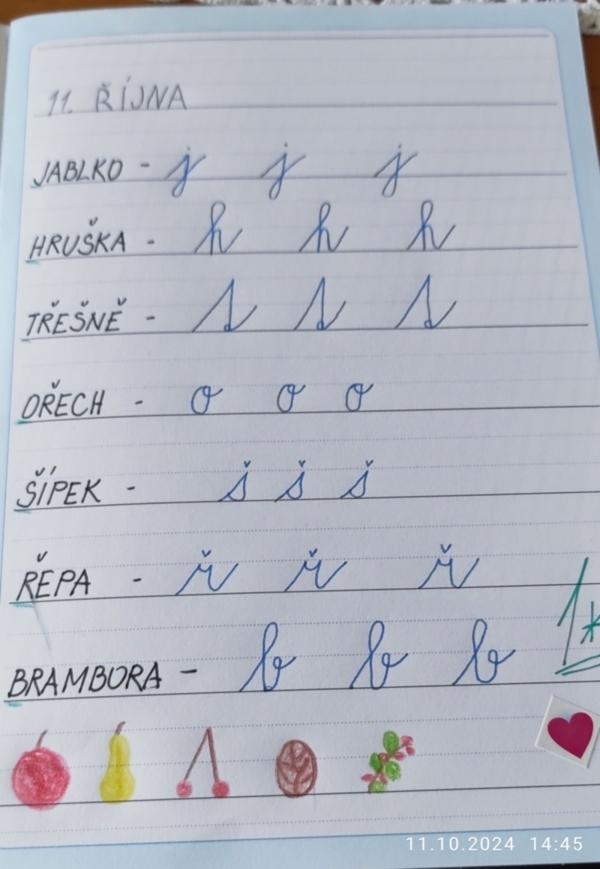 11. ŘÍJNA
JABLKO - j j j
HRUŠKA - h h h
TŘEŠNĚ - t t t
OŘECH - o o o
ŠÍPEK - š š š
ŘEPA - ř ř ř
BRAMBORA - b b b
1*
11.10.2024 14:45